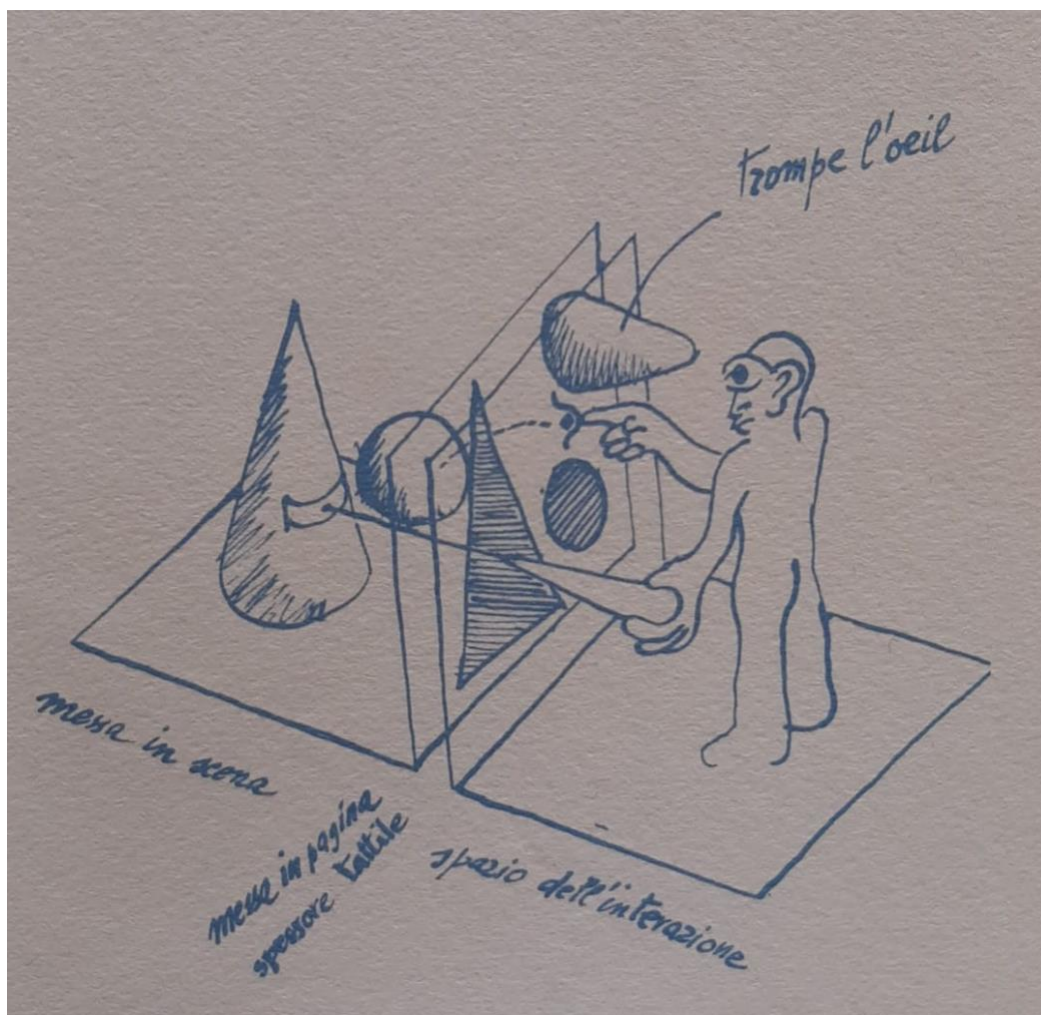 trompe l'oeil
messa in scena
messa in pagina
spessore tattile
spazio dell'interazione